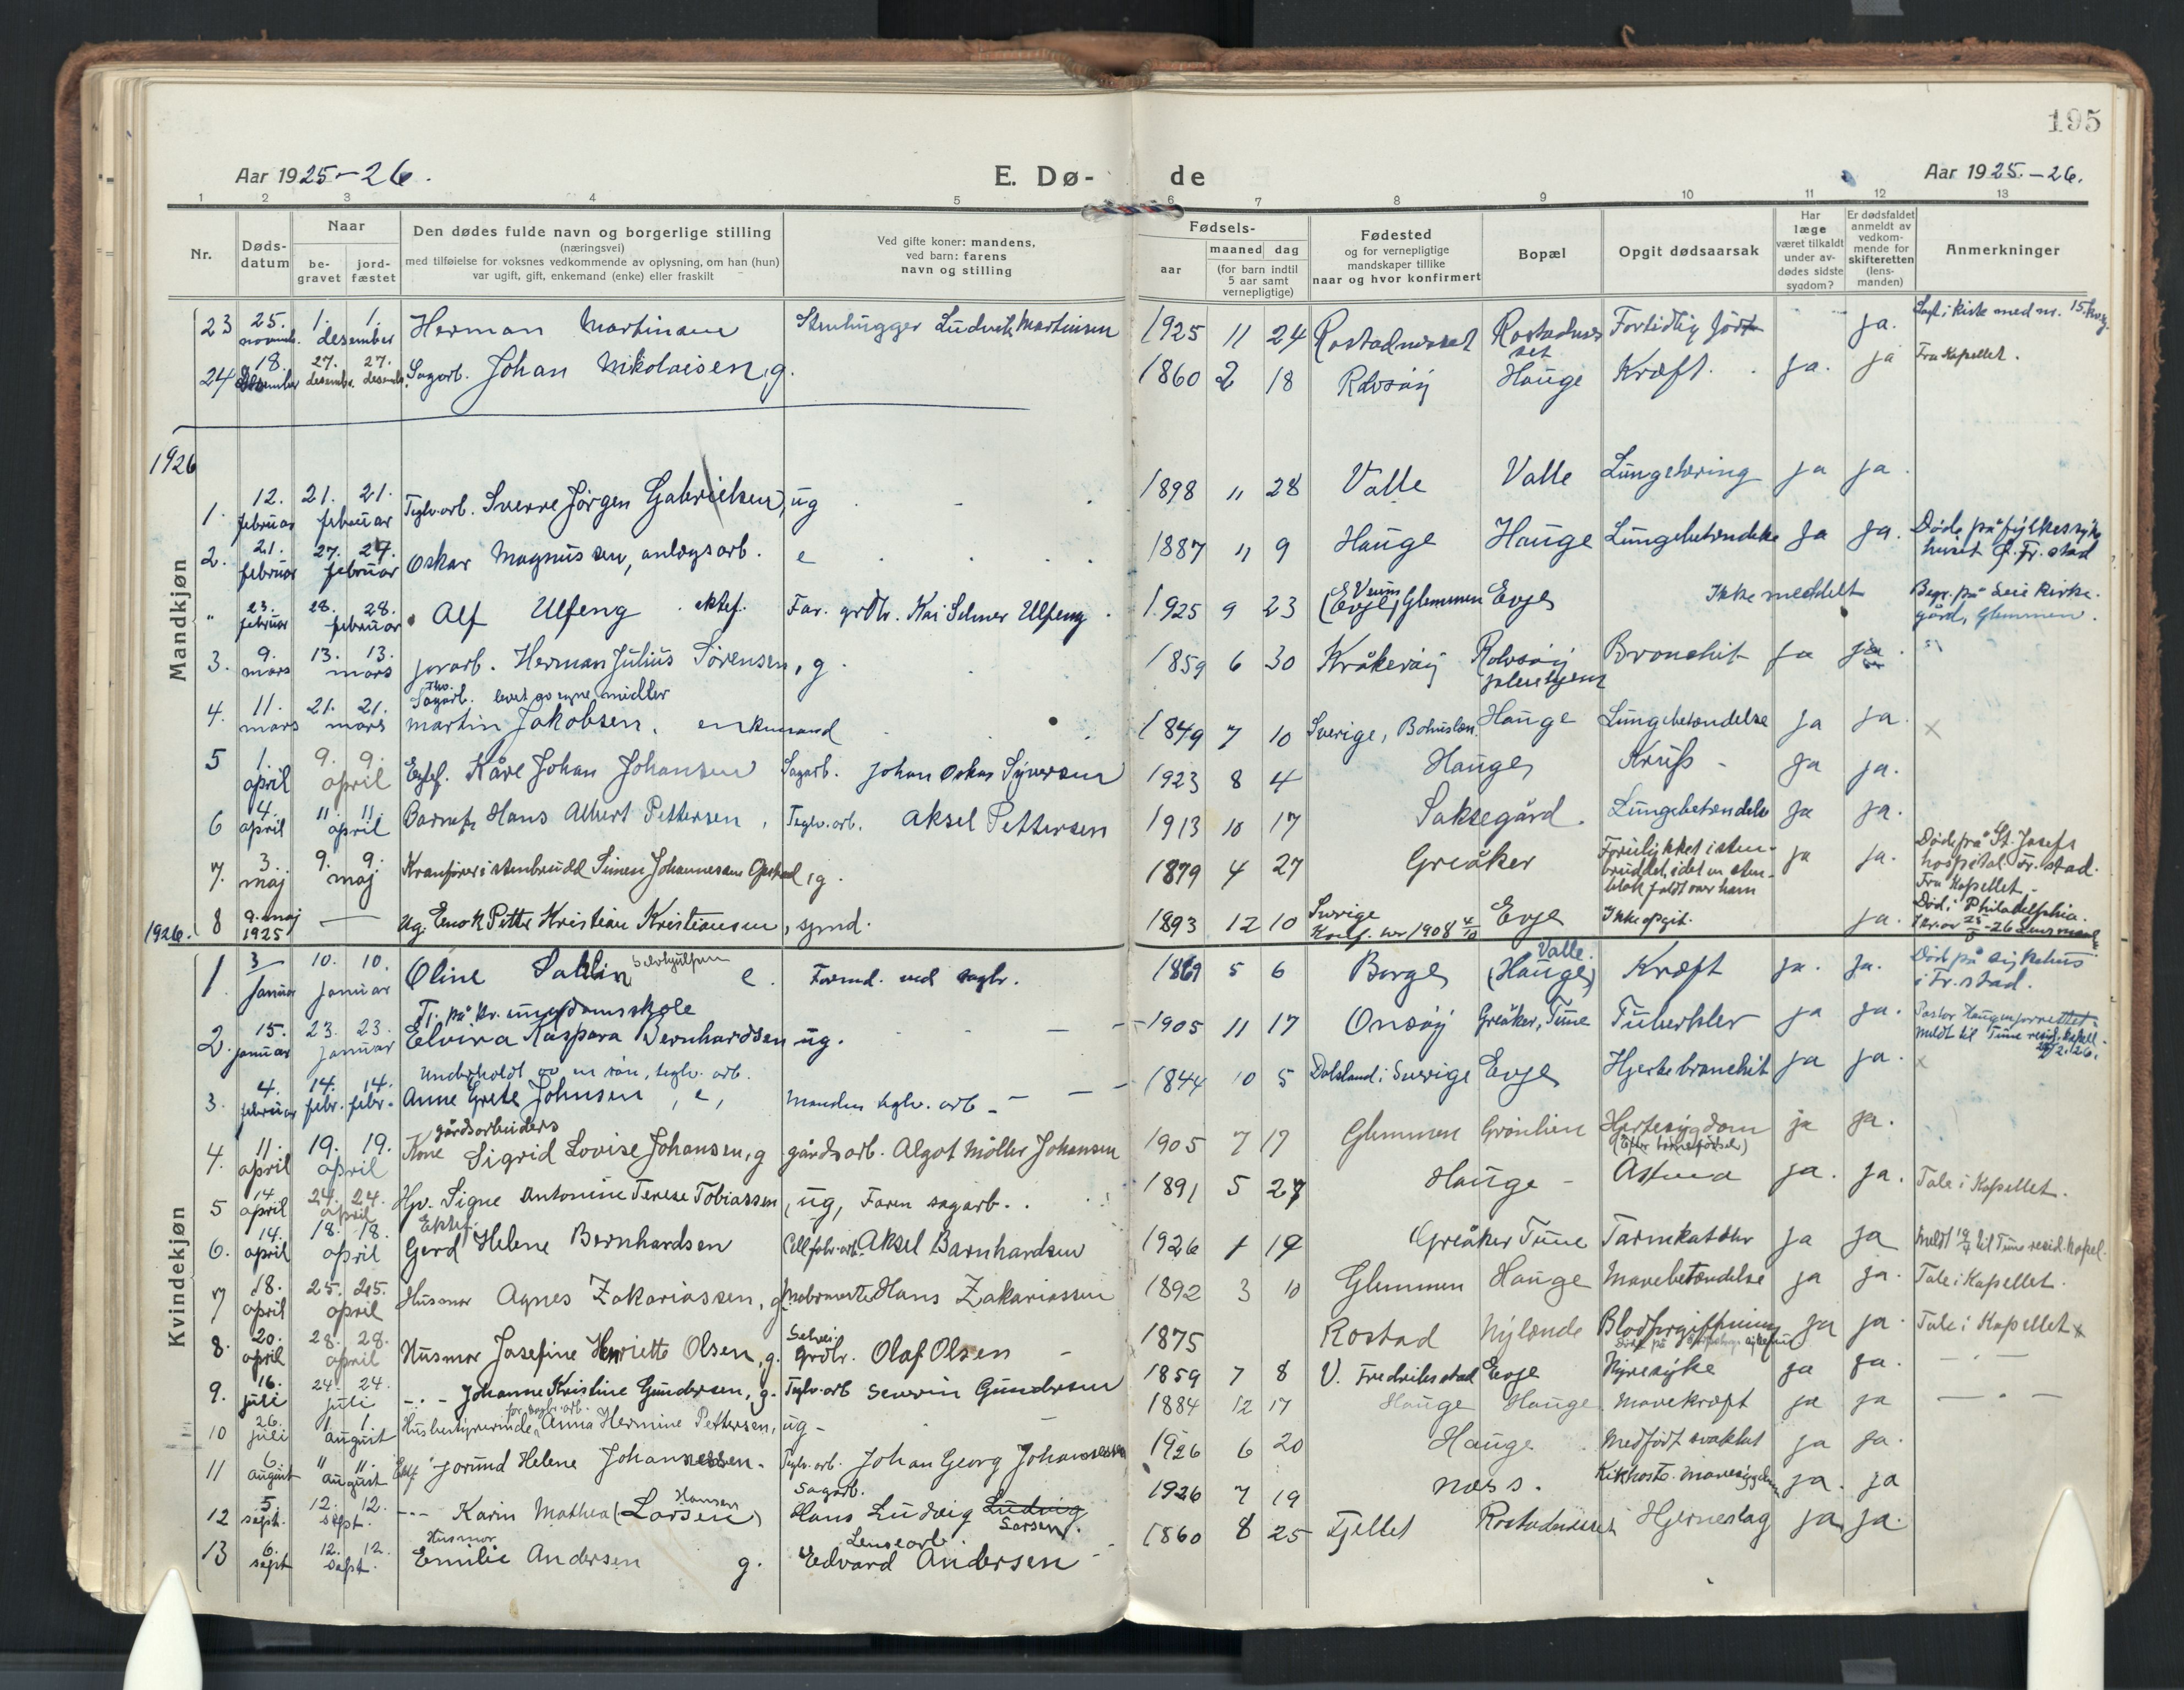 195
Aar 1925-26.
E. Dø-
de
Aar 1925.-26.
1 2 3 4 5 6 7 8 9 10 11 12 13
Nr.
Døds-
datum
Naar
be-
gravet
jord-
fæstet
Den dødes fulde navn og borgerlige stilling
(næringsvei)
med tilføielse for voksnes vedkommende av oplysning, om han (hun)
var ugift, gift, enkemand (enke) eller fraskilt
Ved gifte koner: mandens,
ved barn: farens
navn og stilling
Fødsels-
aar
maaned
dag
(for barn indtil
5 aar samt
vernepligtige)
Fødested
og for vernepligtige
mandskaper tillike
naar og hvor konfirmert
Bopæl
Opgit dødsaarsak
Har
læge
været tilkaldt
under av-
dødes sidste
sygdom?
Er dødsfaldet
anmeldt av
vedkom-
mende for
skifteretten
(lens-
manden)
Anmerkninger
Mandkjøn
23 25. novemb. 1. 1. desember Herman Martinsen Stenhugger Ludvik Martinsen 1925 11 24 Rostadneset Rostadneset Fortidlig født ja. Lagt i kiste med nr. 15
24 18. desember 27. desemb. 27. desemb. Sagarb. Johan Nikolaisen, g. 1860 2 18 Rolvsøy Hauge Kræft. ja. ja Fra Kapellet.
1926
1. 12. februar 21. 21. februar Teglv.arb. Sverre Jørgen Gabrielsen, ug 1898 11 28 Valle Valle Lungetæring ja ja.
2. 21. februar 27. 27. februar Oskar Magnussen, anlægsarb. e 1887 11 9 Hauge Hauge Lungebetændelse ja ja. Døde på fylkessyke-
huset Fr.stad
" 23. februar 28. 28. februar Alf Ulfeng ektef. Far. grdbr. Kai Selmer Ulfeng 1925 9 23 (Evje) Glemmen Evje Ikke meddelt Begr. på Leie kirke-
gård, Glemmen.
3. 9. mars 13. 13. mars jernarb. Herman Julius Sørensen, g 1859 6 30 Kråkerøy Rolvsøy
pleiehjem Bronchit ja ja. "
4. 11. mars 21. 21. mars Sagarb. levet av egne midler
Martin Jakobsen, enkemand 1849 7 10 Sverige, Bohuslen. Hauge Lungebetændelse ja ja. x
5 1. april 9. 9. april Egtef. Kåre Johan Johansen Sagarb. Johan Oskar Syversen 1923 8 4 Hauge Krups - ja ja.
6 4. april 11. 11. april Barnef. Hans Albert Pettersen, Teglv.arb. Aksel Pettersen 1913 10 17 Saksegård. Lungebetændelse ja ja.
7. 3. maj 9. 9. maj Kranfører i stenbrudd Simen Johannessen, g. 1879 4 27 Greåker Forulykket i sten-
bruddet, idet en sten-
blok faldt over ham ja ja. Døde på St. Josefs
hospital Fr.stad.
Fra Kapellet.
1926. 8 9. maj
1925 — Ug. Enok Petter Kristian Kristiansen, sjmd. 1893 12 10 Sverige
Konf. 1908 4/10 Evje Ikke opgit. ja. Død i Philadelphia.
Kvindekjøn
1 3 januar 10. 10. januar Oline Sahlin selvhjulpen e. Formd. ved teglv. 1869 5 6 Borge Valle
(Hauge) Kræft ja. ja. Død på sykehus
i Fr.stad.
2. 15. januar 23. 23. januar Tj. på kr. ungdomsskole
Elvira Kaspara Bernhardsen ug. 1905 11 17 Onsøy Greåker, Tune Tuberkler ja ja. Pastor Haugen forrettet
meldt til Tune resid. kapell.
3. 4. februar 14. febr. 14. febr. Underholdt av en søn, teglv. arb.
Anne Grete Johnsen, e, Manden teglv. arb - 1844 10 5 Dalsland i Sverige Evje Hjertebronchit ja ja. x
4. 11. april 19. 19. april gårdsarbeiders
Kone Sigrid Lovise Johansen, g gårdsarb. Algot Möller Johansen 1905 7 17 Glemmen Grønlien Hjertesygdom
(Efter barnefødsel) ja ja.
5 14 april 24. 24. april Hp. Signe Antonine Terese Tobiassen, ug, Faren sagarb. 1891 5 27 Hauge - Astma ja. ja. Tale i Kapellet.
6. 14. april 18. 18. april Ektef.
Gerd Helene Bernhardsen Cell.fabr.arb. Aksel Barnhardsen 1926 1 19 Greåker Tune Tarmkatarr ja ja Meldt til Tune resid. kapel.
7 18. april 25. 25. april Husmor Agnes Zakariassen, g Hans Zakariassen 1892 3 10 Glemmen Hauge Mavebetændelse ja ja. Tale i Kapellet.
8. 20. april 28. 28. april Husmor Josefine Henriette Olsen, g. Selvei.
grdbr. Olaf Olsen - 1875 Rostad Nylænde Blodforgiftning ja ja. Tale i Kapellet x
9. 16. juli 24. 24. juli -"- Johanne Kristine Gundersen, g. Teglv.arb Severin Gundersen 1859 7 8 V. Fredrikstad Evje Nyresyke ja ja. — " —
10 26. juli 1. 1. august Husbestyrerinde for teglv.arb. Anna Hermine Pettersen, ug - 1884 12 17 Hauge Hauge Mavekræft ja ja — " —
11 6. august 11 11. august Ektf. Jorund Helene Johannessen. Teglv.arb. Johan Georg Johannessen 1926 6 20 Hauge Medfødt svakhet ja ja.
12 5. sept. 12. 12. sept. -"- Karin Mathea (Larsen) Hansen Sagarb.
Hans Ludvig Ludvig Larsen. 1926 7 19 Næss. Kikhoste. Mavesygdom ja. ja
13 6. sept 12. 12. sept. Husmor
Emilie Andersen g. Lensearb.
Edvard Andersen - 1860 8 25 Fjellet Rostadneset Hjerneslag ja ja.